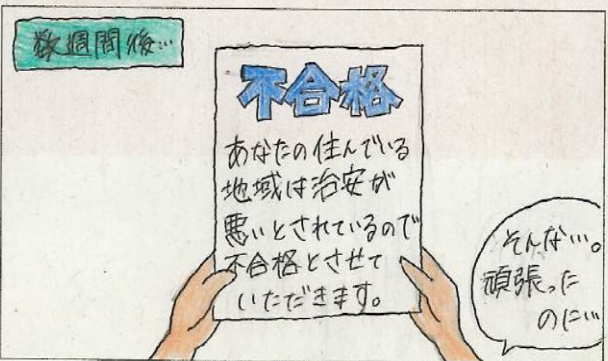 数週間後…
不合格
あなたの住んでいる
地域は治安が
悪いとされているので
不合格とさせて
いただきます。
そんな…。
頑張った
のに…